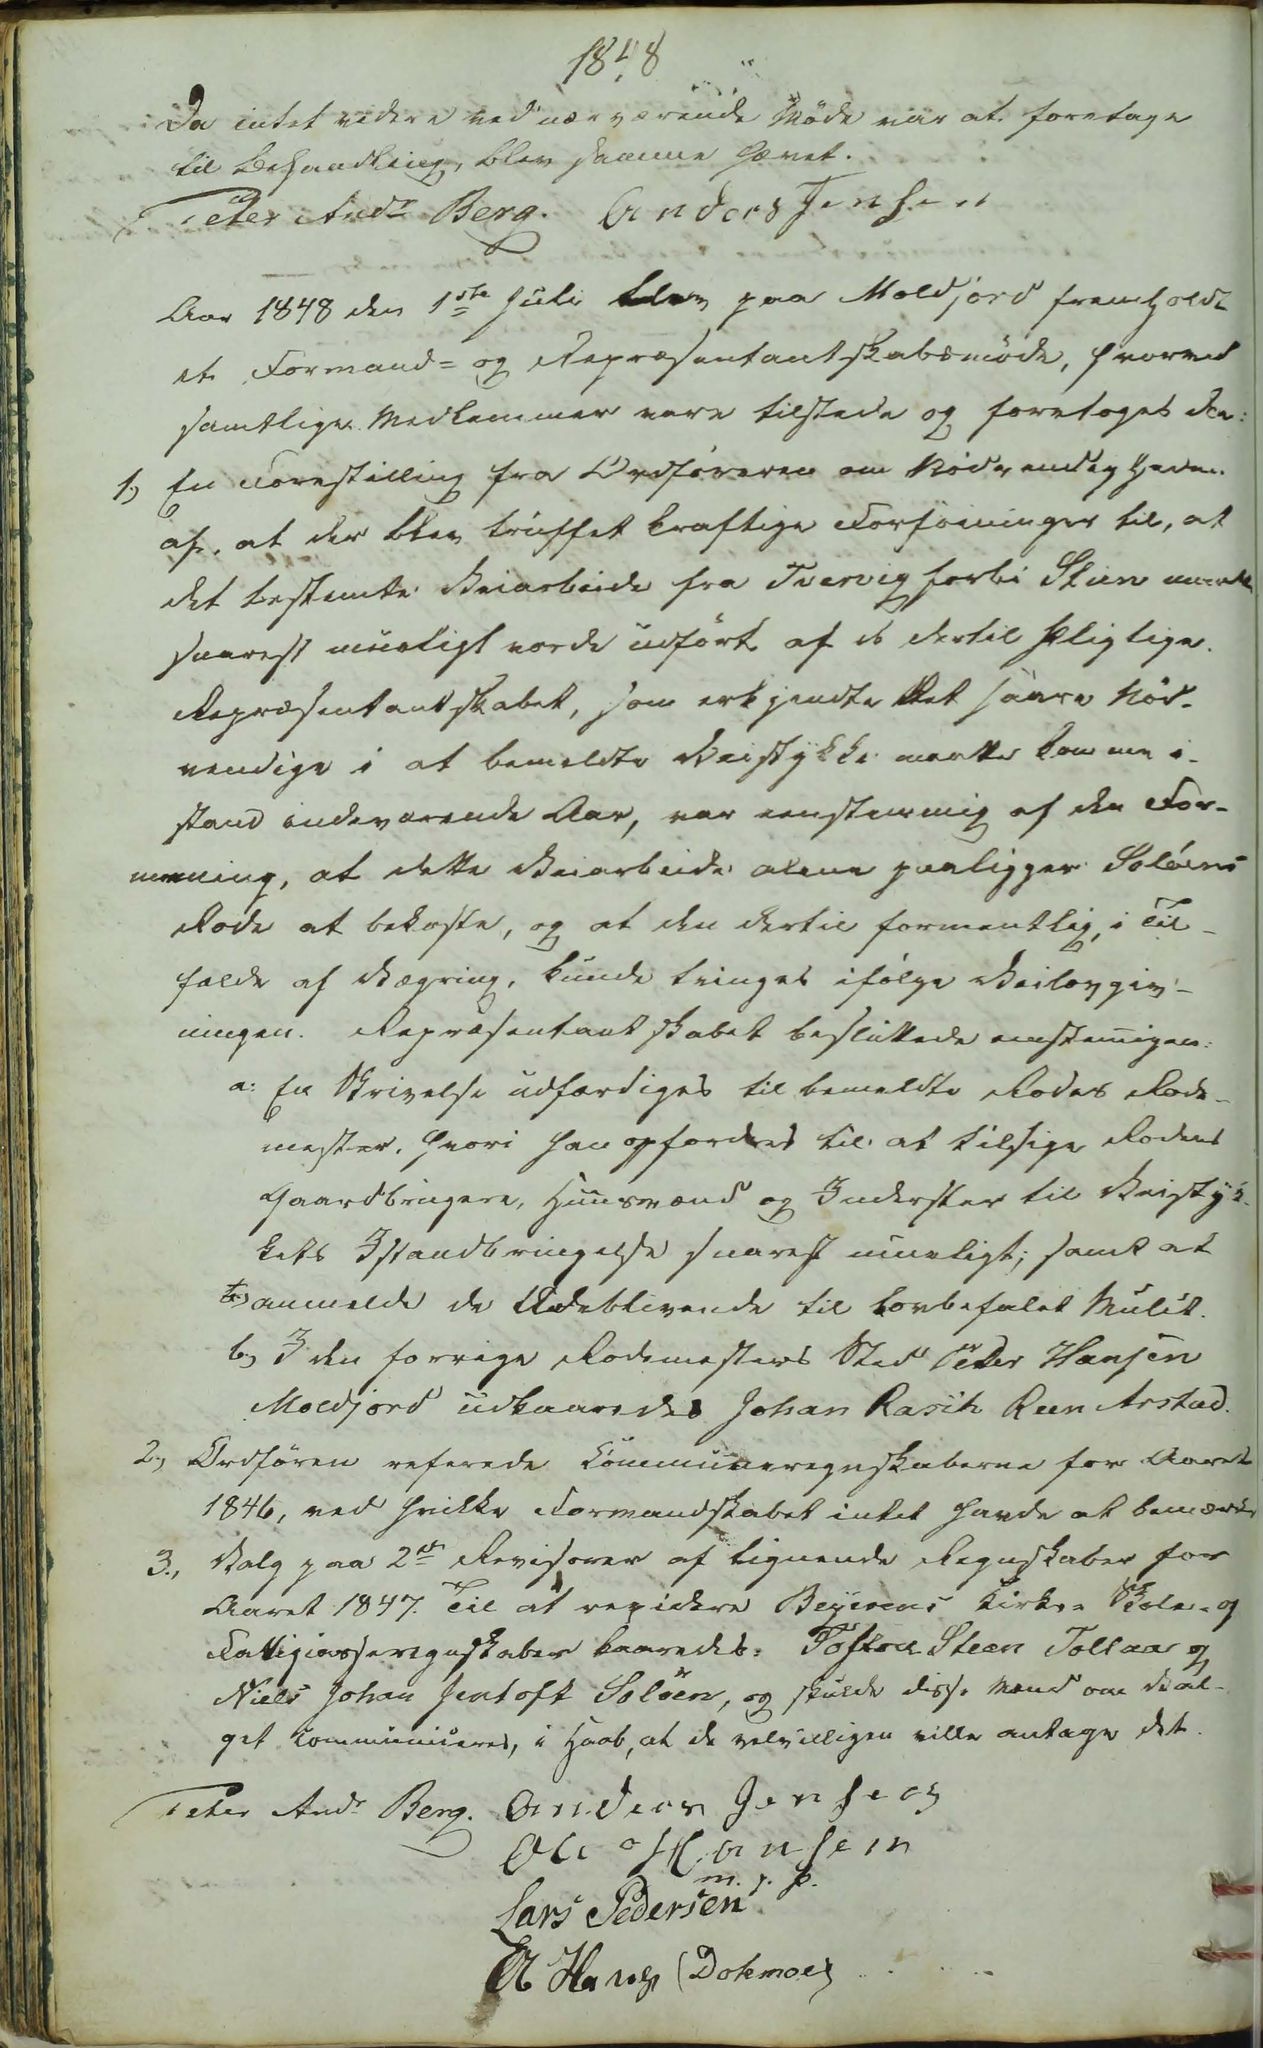 1848
Da intet videre ved nærværende Møde var at foretage
til Behandling, blev samme hævet.
Peter Andr Berg. Anders Jensen
Aar 1848 den 1ste Juli blev paa Moldjord fremholdt
et Formand= og Repræsentantskabsmøde, hvorved
samtlige Medlemmer vare tilstede og foretoges da:
1, En Forestilling fra Ordføreren om Nødvendigheden
af, at der blev truffet kraftige Forføininger til, at
det bestemte Veiarbeide fra Tvervig forbi Steen maatte
snarest mueligt vorde udført af de dertil pligtige.
Repræsentantskabet, som erkjendte det saare Nød-
vendige i at bemeldte Veistykke maatte komme i-
stand indeværende Aar, var eenstemmig af den For-
mening, at dette Veiarbeide alene paaligger Soløens
Rode at bekoste, og at den dertil formentlig, i Til-
fælde af Vægring, kunde tvinges ifølge Veilovgiv-
ningen. Repræsentantskabet besluttede eenstemigen:
a: En Skrivelse udfærdiges til bemeldte Rodes Rode-
mester, hvori han opfordres til at tilsige Rodens
Gaardbrugere, Huusmænd og Inderster til Veistyk-
kets Istandbringelse snarest mueligt; samt at
anmelde de Udeblivende til lovbefalet Mulct.
b, I den forrige Rodemesters Sted Peder Hansen
Moldjord udkaaredes Johan Rasch Reen Arstad.
2, Ordføren referede Communeregnskaberne for Aaret
1846, ved hvilke Formandskabet intet havde at bemærke
3., Valg paa 2de Revisorer af lignende Regnskaber for
Aaret 1847. Til at revidere Beyerens Kirke- Skole- og
Fattigkasseregnskaber kaaredes: Steen Tollaa og
Niels Johan Jentoft Soløen, og skulde disse Mænd om Val-
get communiceres, i Haab, at de velvilligen ville antage det.
Peter Andr Berg. Anders Jensen
Ole Hansen
m. p. P.
Lars Pedersen
Hans (Dokmoe)